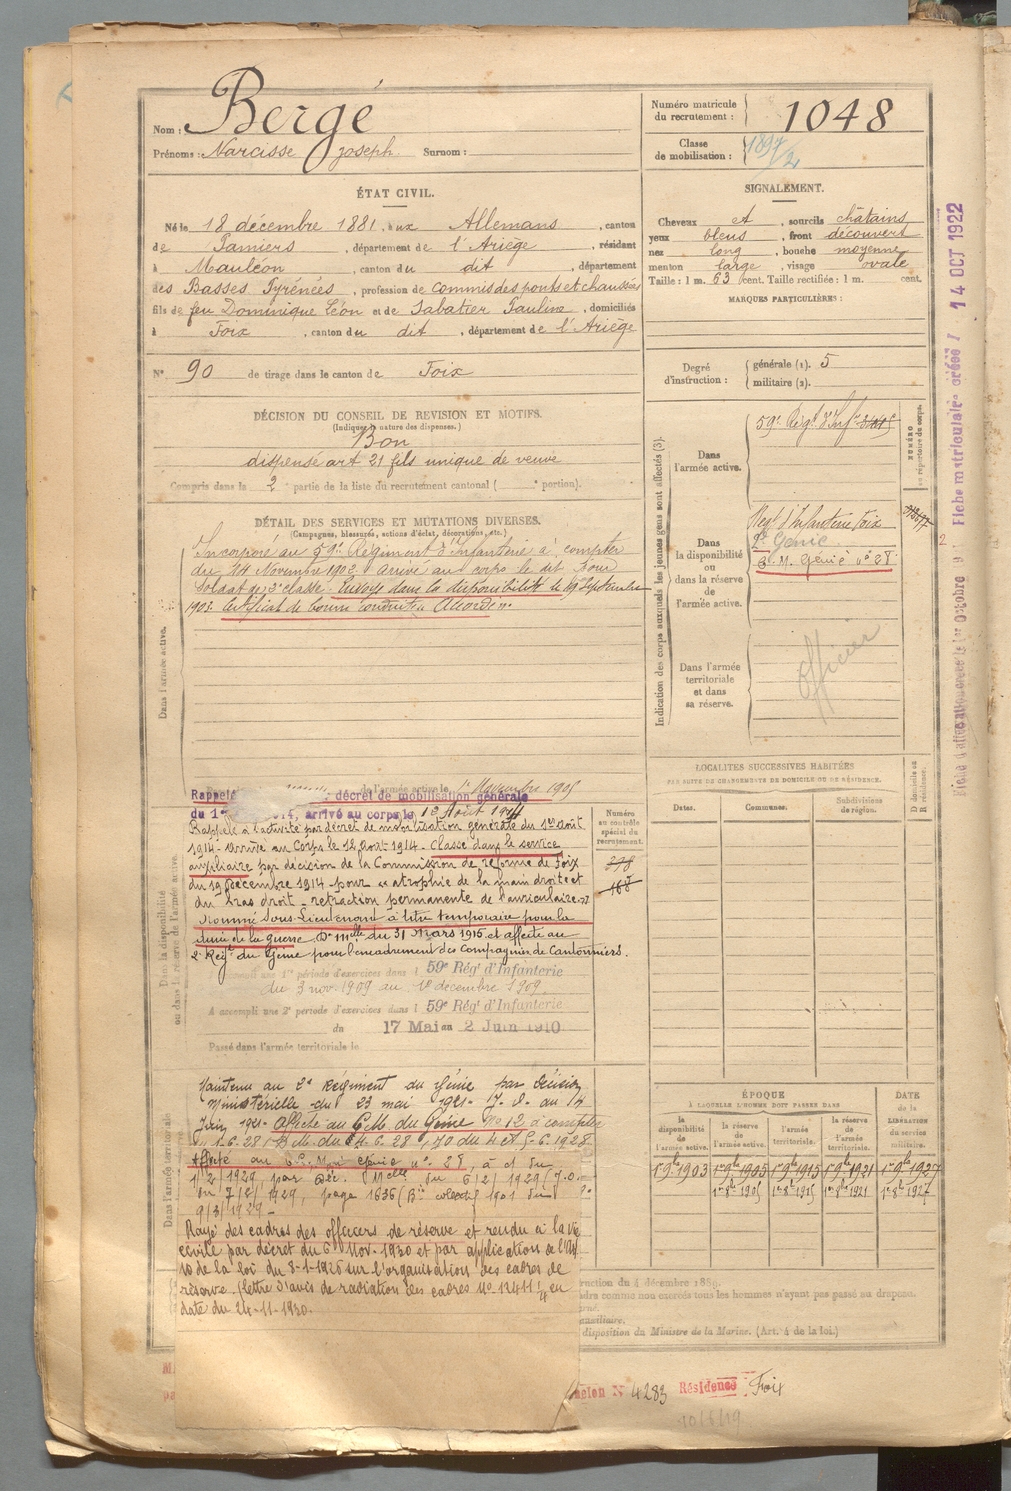 Nom : Bergé
Prénoms : Narcisse Joseph Surnom :
Numéro matricule du recrutement : 1048
Classe de mobilisation : 1897/2
ÉTAT CIVIL.
Né le 18 décembre 1881, aux Allemans, canton
de Pamiers, département de l'Ariège, résidant
à Mauléon, canton du dit, département
des Basses Pyrénées, profession de commis des ponts et chaussées
fils de feu Dominique Léon et de Sabatier Pauline, domiciliés
à Foix, canton du dit, département de l'Ariège
N° 90 de tirage dans le canton de Foix
SIGNALEMENT.
Cheveux et, sourcils châtains
yeux bleus, front découvert
nez long, bouche moyenne
menton large, visage ovale
Taille : 1 m. 63 cent. Taille rectifiée : 1 m. cent.
MARQUES PARTICULIÈRES :
Degré d'instruction : générale (1). 5
militaire (2).
DÉCISION DU CONSEIL DE REVISION ET MOTIFS.
(Indiquer la nature des dispenses.)
Bon
dispensé art 21 fils unique de veuve
Compris dans la 2 partie de la liste du recrutement cantonal ( portion).
DÉTAIL DES SERVICES ET MUTATIONS DIVERSES.
(Campagnes, blessures, actions d'éclat, décorations, etc.)
Dans l'armée active.
Incorporé au 59e Régiment d'Infanterie à compter
du 14 Novembre 1902 Arrivé au corps le dit jour
Soldat de 2e classe. Envoyé dans la disponibilité le 19 Septembre
1903. Certificat de bonne conduite Accordé.
de l'armée active le 1er Novembre 1905
Rappelé décret de mobilisation générale
du 1er 14, arrivé au corps le 12 Août 1914
Dans la disponibilité ou dans la réserve de l'armée active.
Rappelé à l'activité par décret de mobilisation générale du 1er Août
1914 - arrivé au Corps le 12 août 1914 - Classé dans le service
auxiliaire par décision de la Commission de réforme de Foix
du 19 décembre 1914 pour "atrophie de la main droite et
du bras droit - rétraction permanente de l'auriculaire."
Nommé Sous-Lieutenant à titre temporaire pour la
durée de la guerre Don mlle du 31 Mars 1915 et affecté au
2e Régt du Génie pour l'encadrement des Compagnies de Cantonniers.
accompli une 1re période d'exercices dans l 59e Régt d'Infanterie
du 3 nov. 1909 au 1er décembre 1909.
A accompli une 2e période d'exercices dans l 59e Régt d'Infanterie
du 17 Mai au 2 Juin 1910
Passé dans l'armée territoriale le
Dans l'armée territoriale
Maintenu au 2e Régiment du Génie par Décision
Ministérielle du 23 mai 1921- J.O. du 14
Juin 1921. Affecté au C.M. du Génie No 12 à compter
Affecté au C. Mob Génie no 28, à c/ du
1/2/1929, par Déc. Mlle du 6/2/1929 (J.O.
du 7/2/1929, page 1636 (Bin collectif 1901 du
9/3/1929 -
Rayé des cadres des officiers de réserve et rendu à la vie
civile par décret du 6 Nov. 1930 et par application de l'Art
10 de la loi du 8-1-1925 sur l'organisation des cadres de
réserve. (lettre d'avis de radiation des cadres No 13411 en
date du 24-11-1930.
Indication des corps auxquels les jeunes gens sont affectés (3).
NUMÉRO au répertoire du corps.
Dans l'armée active.
59e Régt d'Inf
Dans la disponibilité ou dans la réserve de l'armée active.
Régt d'Infanterie Foix
2e Génie
C. M. Génie no 28
Dans l'armée territoriale et dans sa réserve.
Officier
Numéro au contrôle spécial du recrutement.
LOCALITÉS SUCCESSIVES HABITÉES
PAR SUITE DE CHANGEMENTS DE DOMICILE OU DE RÉSIDENCE.
Dates. Communes. Subdivisions de région. D domicile ou R résidence.
ÉPOQUE
À LAQUELLE L'HOMME DOIT PASSER DANS
la disponibilité de l'armée active. la réserve de l'armée active. l'armée territoriale. la réserve de l'armée territoriale.
DATE de la LIBÉRATION du service militaire.
1er 9bre 1903 1er 9bre 1905 1er 9bre 1915 1er 9bre 1921 1er 9bre 1927
1er 8bre 1905 1er 8bre 1915 1er 8bre 1921 1er 8bre 1927
truction du 4 décembre 1889.
adre comme non exercés tous les hommes n'ayant pas passé au drapeau.
auxiliaire,
disposition du Ministre de la Marine. (Art. 4 de la loi.)
N° 4283 Résidence Foix
10/6/19
Fiche matriculaire créée l 14 OCT 1922